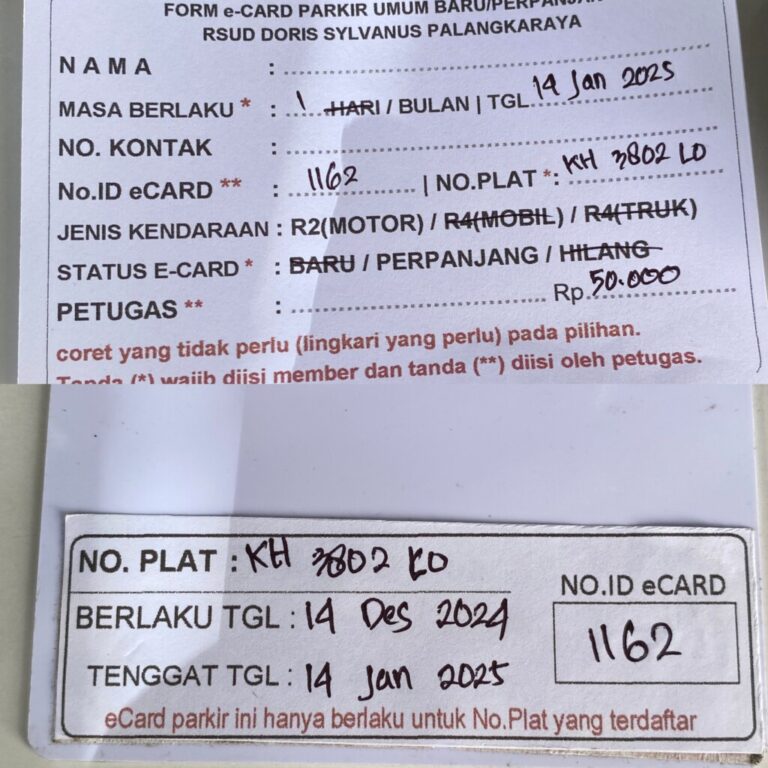 FORM e-CARD PARKIR UMUM BARU/PERPANJAN
RSUD DORIS SYLVANUS PALANGKARAYA
NAMA :
MASA BERLAKU * : 1 HARI / BULAN | TGL 14 Jan 2025
NO. KONTAK :
No.ID eCARD ** : 1162 | NO.PLAT *: KH 3802 LO
JENIS KENDARAAN : R2(MOTOR) / R4(MOBIL) / R4(TRUK)
STATUS E-CARD * : BARU / PERPANJANG / HILANG
PETUGAS ** : Rp 50.000
coret yang tidak perlu (lingkari yang perlu) pada pilihan.
Tanda (*) wajib diisi member dan tanda (**) diisi oleh petugas.
NO. PLAT : KH 3802 LO
BERLAKU TGL : 14 Des 2024
TENGGAT TGL : 14 Jan 2025
NO.ID eCARD
1162
eCard parkir ini hanya berlaku untuk No.Plat yang terdaftar